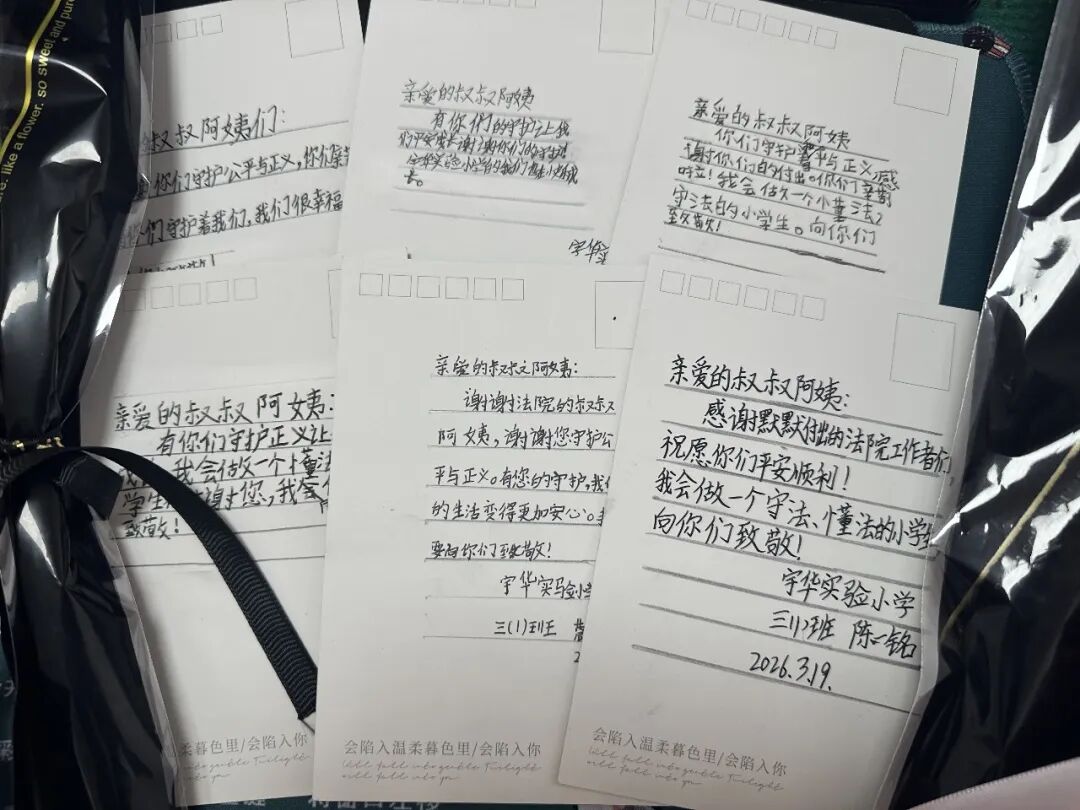 like a flower. so sweet and pure
叔叔阿姨们:
你们守护公平与正义,你们辛
们守护着我们,我们很幸福
亲爱的叔叔阿姨
有你们的守护让我
们平安成长谢谢你们的守护
宇华实验小学的我们
宇华实
亲爱的叔叔阿姨
你们守护着平与正义感
谢你们的付出。你们辛苦
啦!我会做一个小董法
守法的小学生。向你们
至敬!
亲爱的叔叔阿姨:
有你们守护正义让
我会做一个懂法
学生 谢谢您,我会
致敬!
亲爱的叔叔阿姨:
谢谢法院的叔叔
阿姨,谢谢您守护公
平与正义。有您的守护,我们
的生活变得更加安心。
要向你们致敬!
宇华实验小学
三(1)班
亲爱的叔叔阿姨:
感谢默默付出的法院工作者们
祝愿你们平安顺利!
我会做一个守法、懂法的小学生
向你们致敬!
宇华实验小学
三(1)班 陈一铭
2026.3.19.
柔暮色里/会陷入你
会陷入温柔暮色里/会陷入你
会陷入温柔暮色里/会陷入你